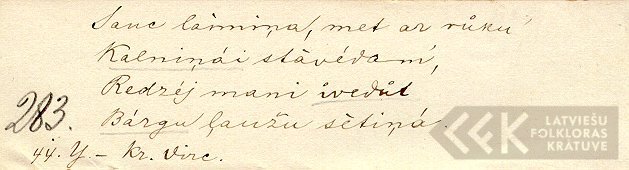 Sauc lāmiņa, met ar rūku
Kalniņái stāvédamí,
Redzéj mani ivedůt
283. Bārgu ļaužu sētiņá.
44. Y. – Kr. Virc.
LATVIEŠU
FOLKLORAS
KRĀTUVE